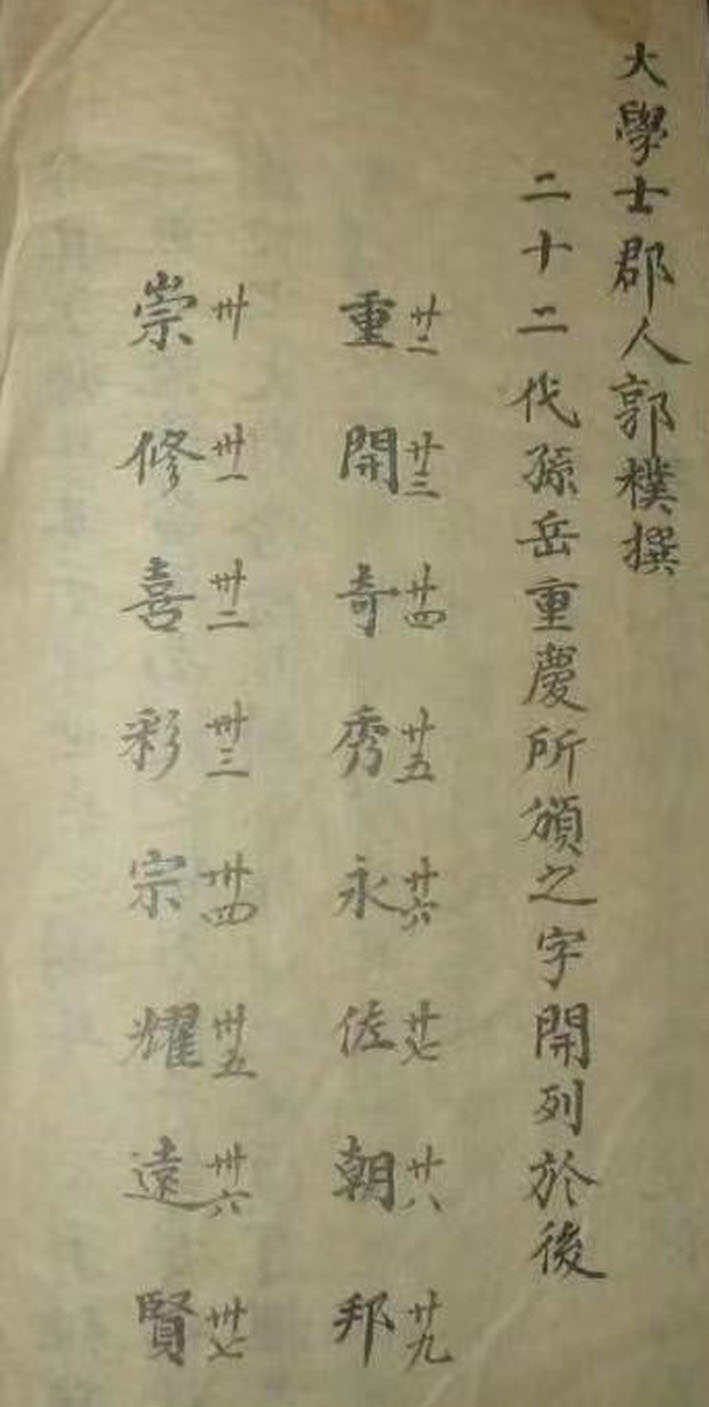 大學士郡人郭樸撰
二十二代孫岳重慶所頒之字開列於後
重廿二 開廿三 奇廿四 秀廿五 永廿六 佐廿七 朝廿八 邦廿九
崇卅 修卅一 喜卅二 彩卅三 宗卅四 耀卅五 遠卅六 賢卅七